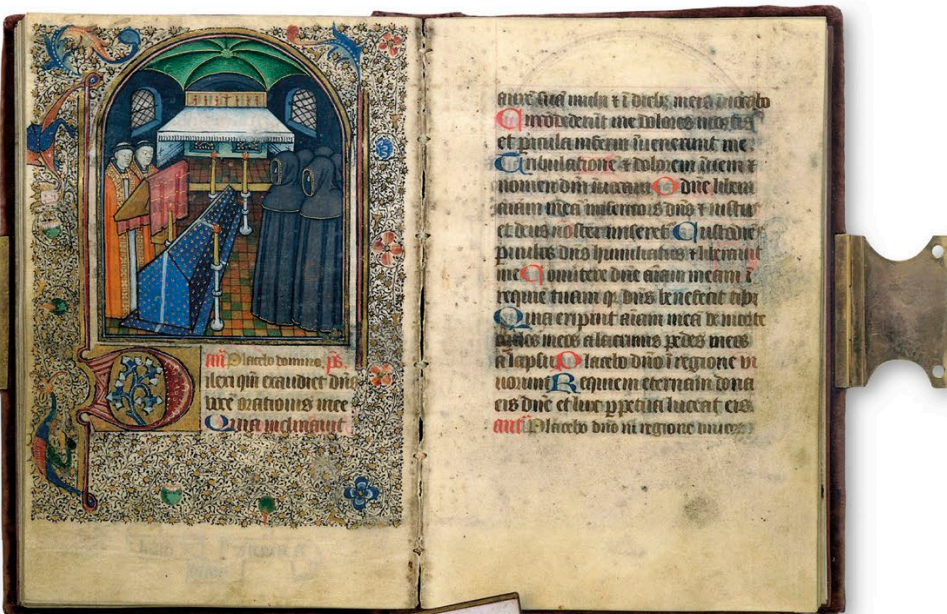 añ Placebo domino. ps.
ilexi qm̄ exaudiet dn̄s
voce orationis mee
Quia inclinauit
aurē suā michi ⁊ ī dieb; meis īuocabo
Circūdederūt me dolores mortis
et picula inferni īuenerunt me
Tribulationē ⁊ dolorem īueni ⁊
nomen dn̄i īuocaui O dn̄e libera
aīam meā misericors dn̄s ⁊ iustus
et deus noster miseret̄ Custodiēs
puulos dn̄s humiliatus ⁊ liberauit
me Conuertere dn̄e aīam meam ī
requiē tuam q; dn̄s benefecit tibi
Quia eripuit aīam meā de morte
oculos meos a lacrimis pedes meos
a lapsu Placebo dn̄o ī regione vi
uorum Requiem eternam dona
eis dn̄e et lux ppetua luceat eis
añ Placebo dn̄o in regione viuorū